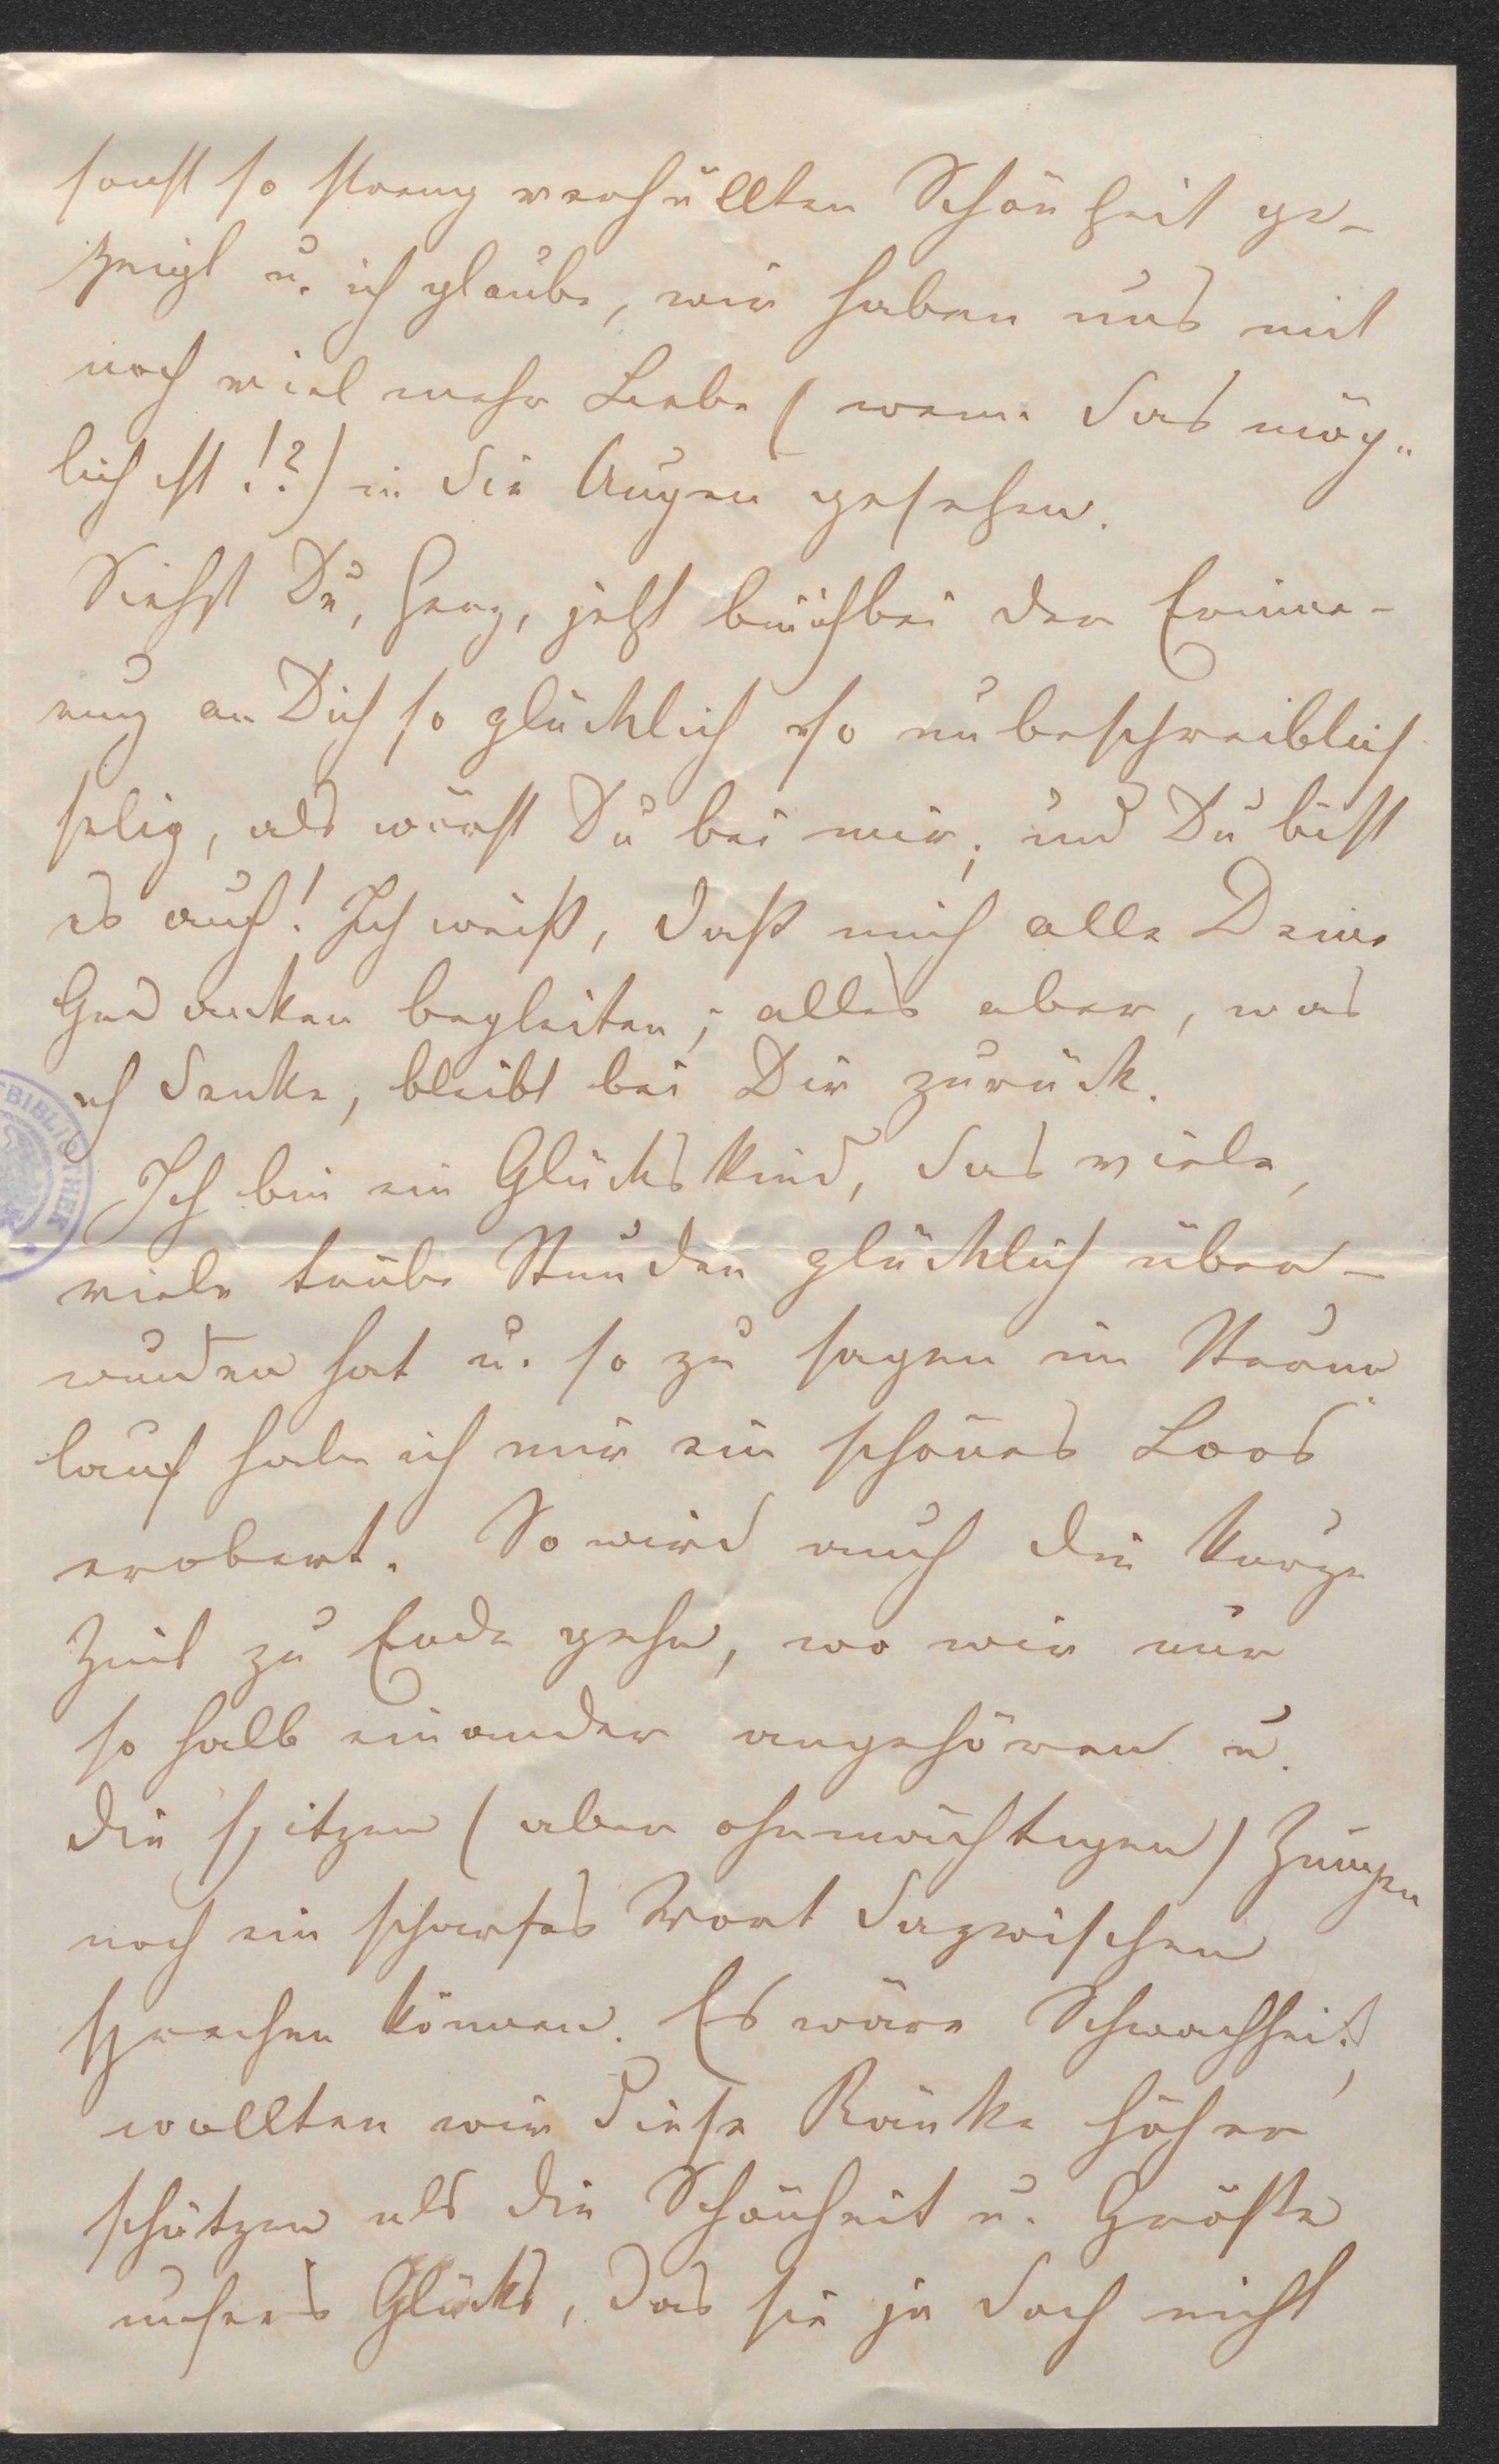 sonst so streng verhüllten Schönheit ge-
zeigt u. ich glaube, wir haben uns mit
noch viel mehr Liebe (wenn das mög-
lich ist!?) in die Augen gesehen.
Siehst Du, Herz, jetzt bin ich bei der Erinne-
rung an Dich so glücklich so unbeschreiblich
selig, als wärst Du bei mir; und Du bist
es auch! Ich weiß, daß mich alle Deine
Gedanken begleiten; alles aber, was
ich denke, bleibt bei Dir zurück.
BIBLIOTHEK
Ich bin ein Glückskind, das viele,
viele trübe Stunden glücklich über-
wunden hat u. so zu sagen im Sturm
lauf habe ich mir ein schönes Loos
erobert. So wird auch die kurze
Zeit zu Ende gehn, wo wir nur
so halb einander angehören u.
die spitzen (aber ohnmächtigen) Zungen
noch ein scharfes Wort dazwischen
sprechen können. Es wäre Schwachheit,
wollten wir diese Ränke höher
schätzen als die Schönheit u. Größe
unseres Glücks, das sie ja doch nicht